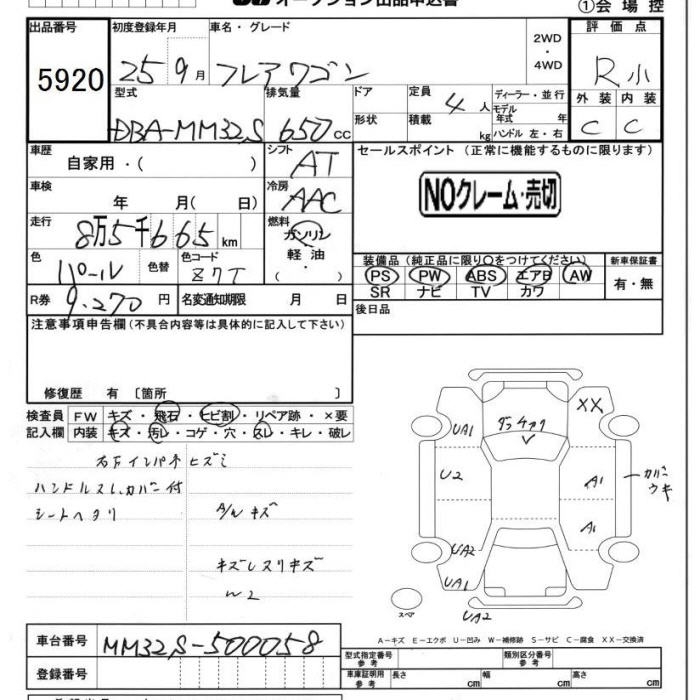 オークション出品申込書
①会場控
出品番号 初度登録年月 車名・グレード 2WD・4WD 評価点
5920 25 9月 フレアワゴン R小
型式 排気量 ドア 定員 4人 ディーラー・並行 外装 内装
モデル年式 年
DBA-MM32S 650cc 形状 積載 kg ハンドル 左・右 C C
車歴 自家用・( ) シフト AT セールスポイント (正常に機能するものに限ります)
車検 年 月( 日) 冷房 AAC NOクレーム・売切
走行 8万5千665km 燃料 ガソリン 軽油 ( )
色 パール 色替 色コード Z7T
装備品(純正品に限り○をつけてください) 新車保証書
PS PW ABS エアB AW 有・無
SR ナビ TV カワ
R券 9.270円 名変通知期限 月 日 後日品
注意事項申告欄(不具合内容等は具体的に記入して下さい)
修復歴 有 〔箇所 〕
検査員 FW キズ・飛石・ヒビ割・リペア跡・×要
記入欄 内装 キズ・汚レ・コゲ・穴・スレ・キレ・破レ
右下インパネヒズミ
ハンドルスレ、カバー付
シートヘタリ A/W キズ
キズレスリキズ
W2
XX
UA1
U2 A1 カバーウキ
A1
UA2
UA1
UA2
スペア
A-キズ E-エクボ U-凹み W-補修跡 S-サビ C-腐食 XX-交換済
車台番号 MM32S-500058
型式指定番号 参考 類別区分番号 参考
登録番号
車庫証明用 参考 長さ cm 幅 cm 高さ cm